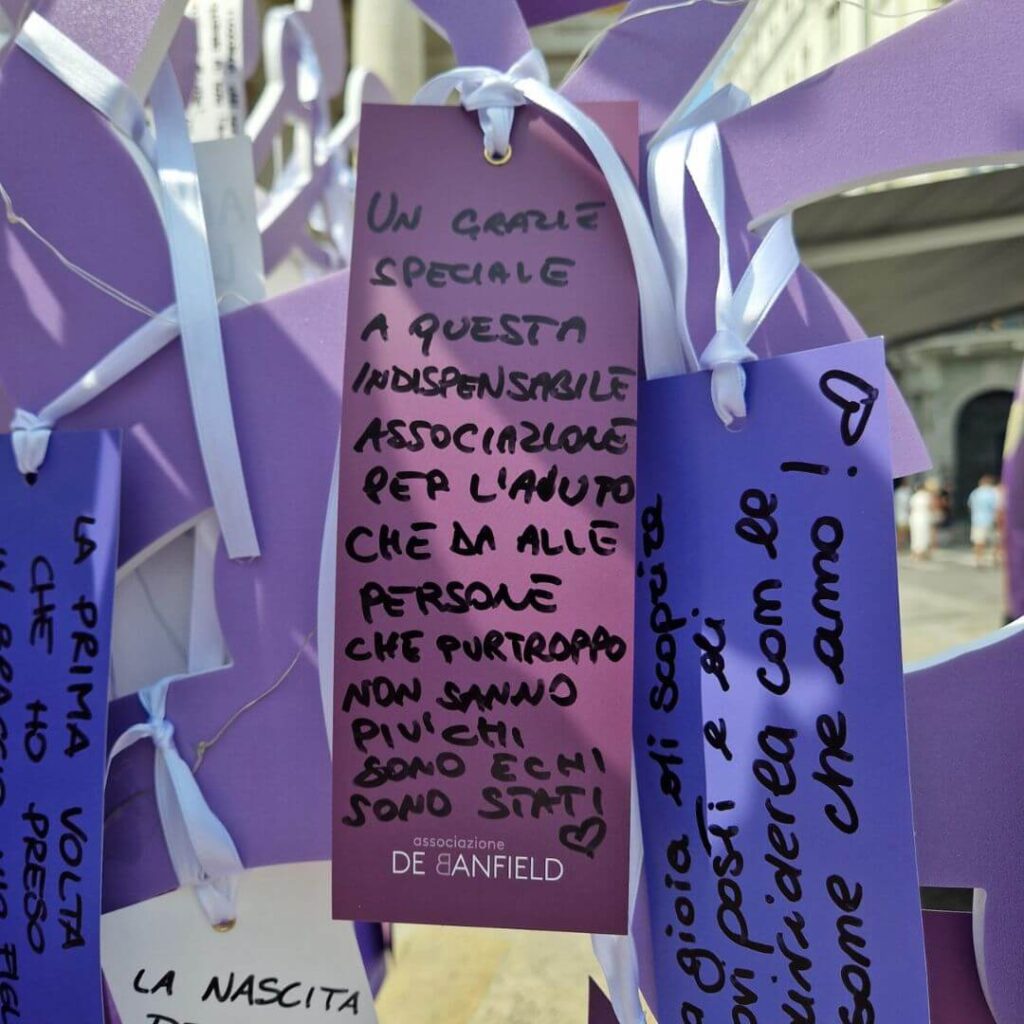 UN GRAZIE
SPECIALE
A QUESTA
INDISPENSABILE
ASSOCIAZIONE
PER L'AIUTO
CHE DA ALLE
PERSONE
CHE PURTROPPO
NON SANNO
PIU' CHI
SONO E CHI
SONO STATI
associazione
DE BANFIELD
LA PRIMA VOLTA
CHE HO PRESO
IN BRACCIO MIO FIGL
LA NASCITA
gioia di scoprire
posti e di
condividerla con le
che amo!